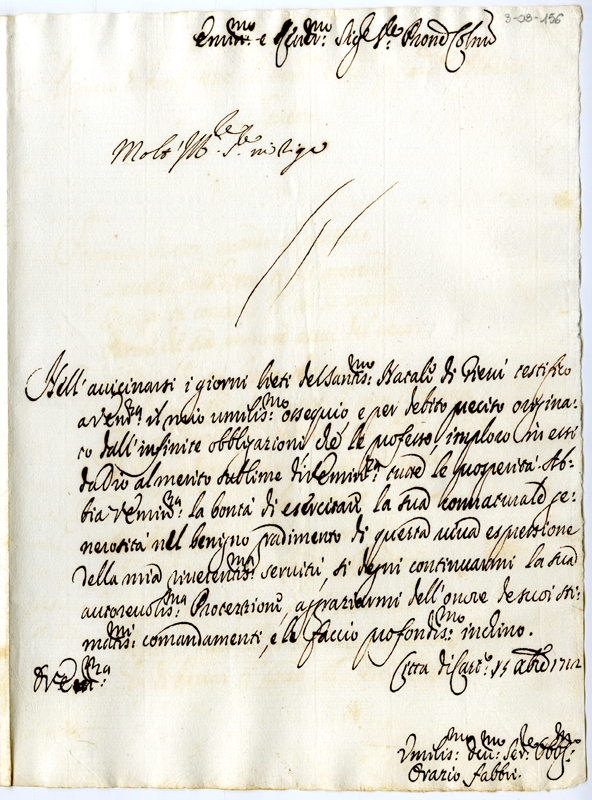 3-08-156
Emin:mo e Rever:mo Sig:re Sig:re Pron:e Col:mo
Molt' Ill:re S:re mio Sig:re
Nell'avvicinarsi i giorni lieti del Santis:mo Natale di Giesù testifico
a V Em:za il mio umilis:mo ossequio e per debito preciso origina-
to dall'infinite obbligazioni, che le professo, imploro in essi
da Dio al merito sublime di V Emin:za tutte le prosperità. Ab-
bia V Emin:za la bontà di esercitare la sua connaturale ge-
nerosità nel benigno gradimento di questa viva espressione
della mia riverentis:ma servitù, si degni continuarmi la sua
autorevolis:ma Protezzione, aggraziarmi dell'onore de suoi sti-
matis:mi comandamenti, e le faccio profondis:mo inchino.
Di V Em:za
Città di Cast:o 15 Xbre 1712
Umilis:mo Dev:mo Ser:re Obblig:mo
Orazio Fabbri.